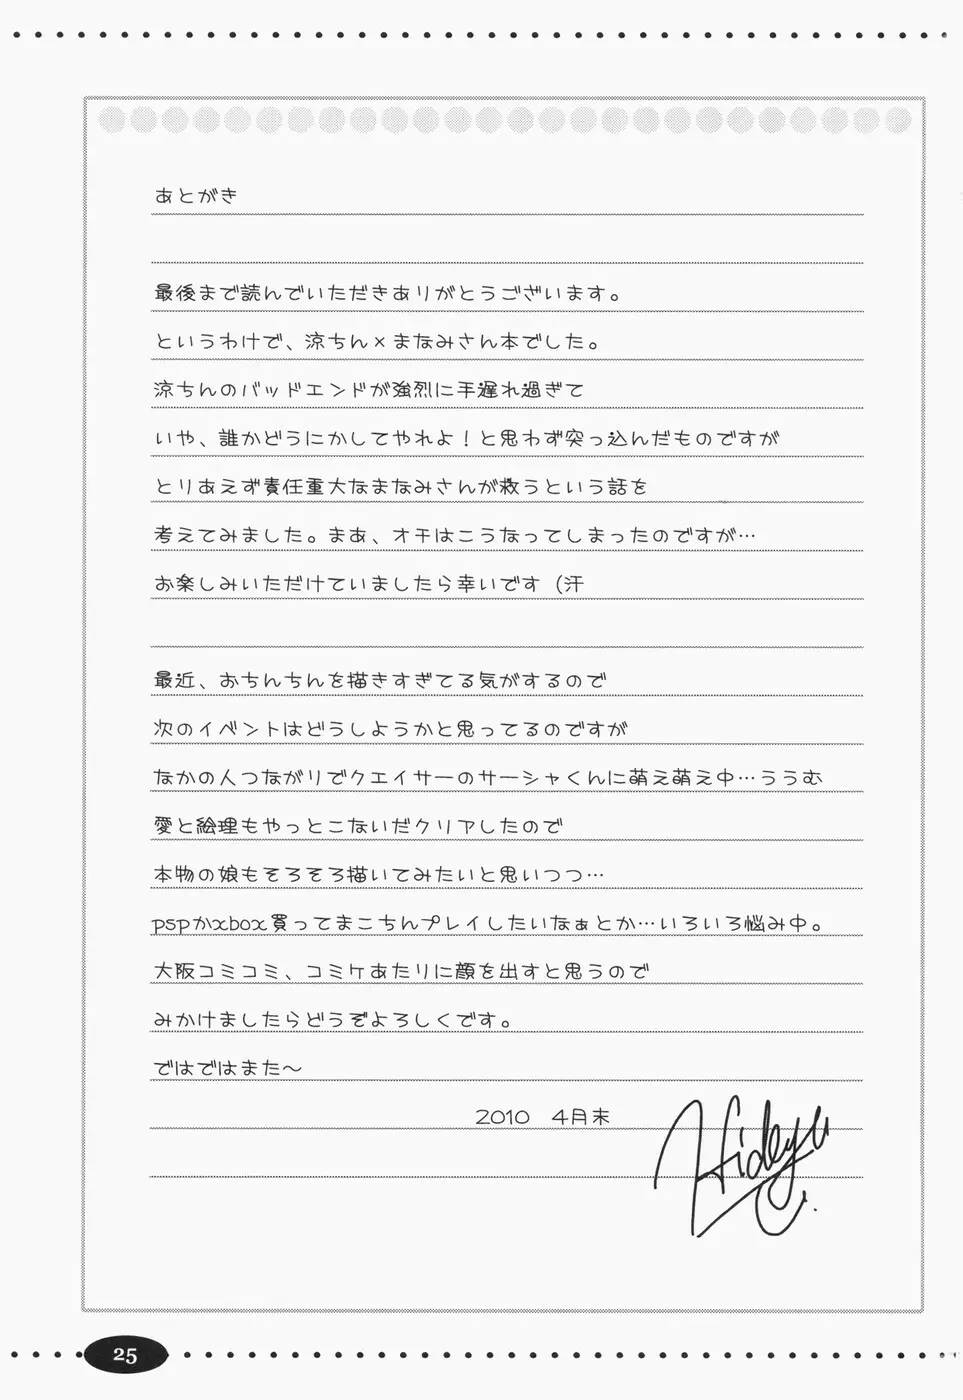 あとがき
最後まで読んでいただきありがとうございます。
というわけで、涼ちん×まなみさん本でした。
涼ちんのバッドエンドが強烈に手遅れ過ぎて
いや、誰かどうにかしてやれよ！と思わず突っ込んだものですが
とりあえず責任重大なまなみさんが救うという話を
考えてみました。まあ、オチはこうなってしまったのですが…
お楽しみいただけていましたら幸いです（汗
最近、おちんちんを描きすぎてる気がするので
次のイベントはどうしようかと思ってるのですが
なかの人つながりでクエイサーのサーシャくんに萌え萌え中…ううむ
愛と絵理もやっとこないだクリアしたので
本物の娘もそろそろ描いてみたいと思いつつ…
pspかxbox買ってまこちんプレイしたいなぁとか…いろいろ悩み中。
大阪コミコミ、コミケあたりに顔を出すと思うので
みかけましたらどうぞよろしくです。
ではではまた～
2010　4月末
Hideyu
25